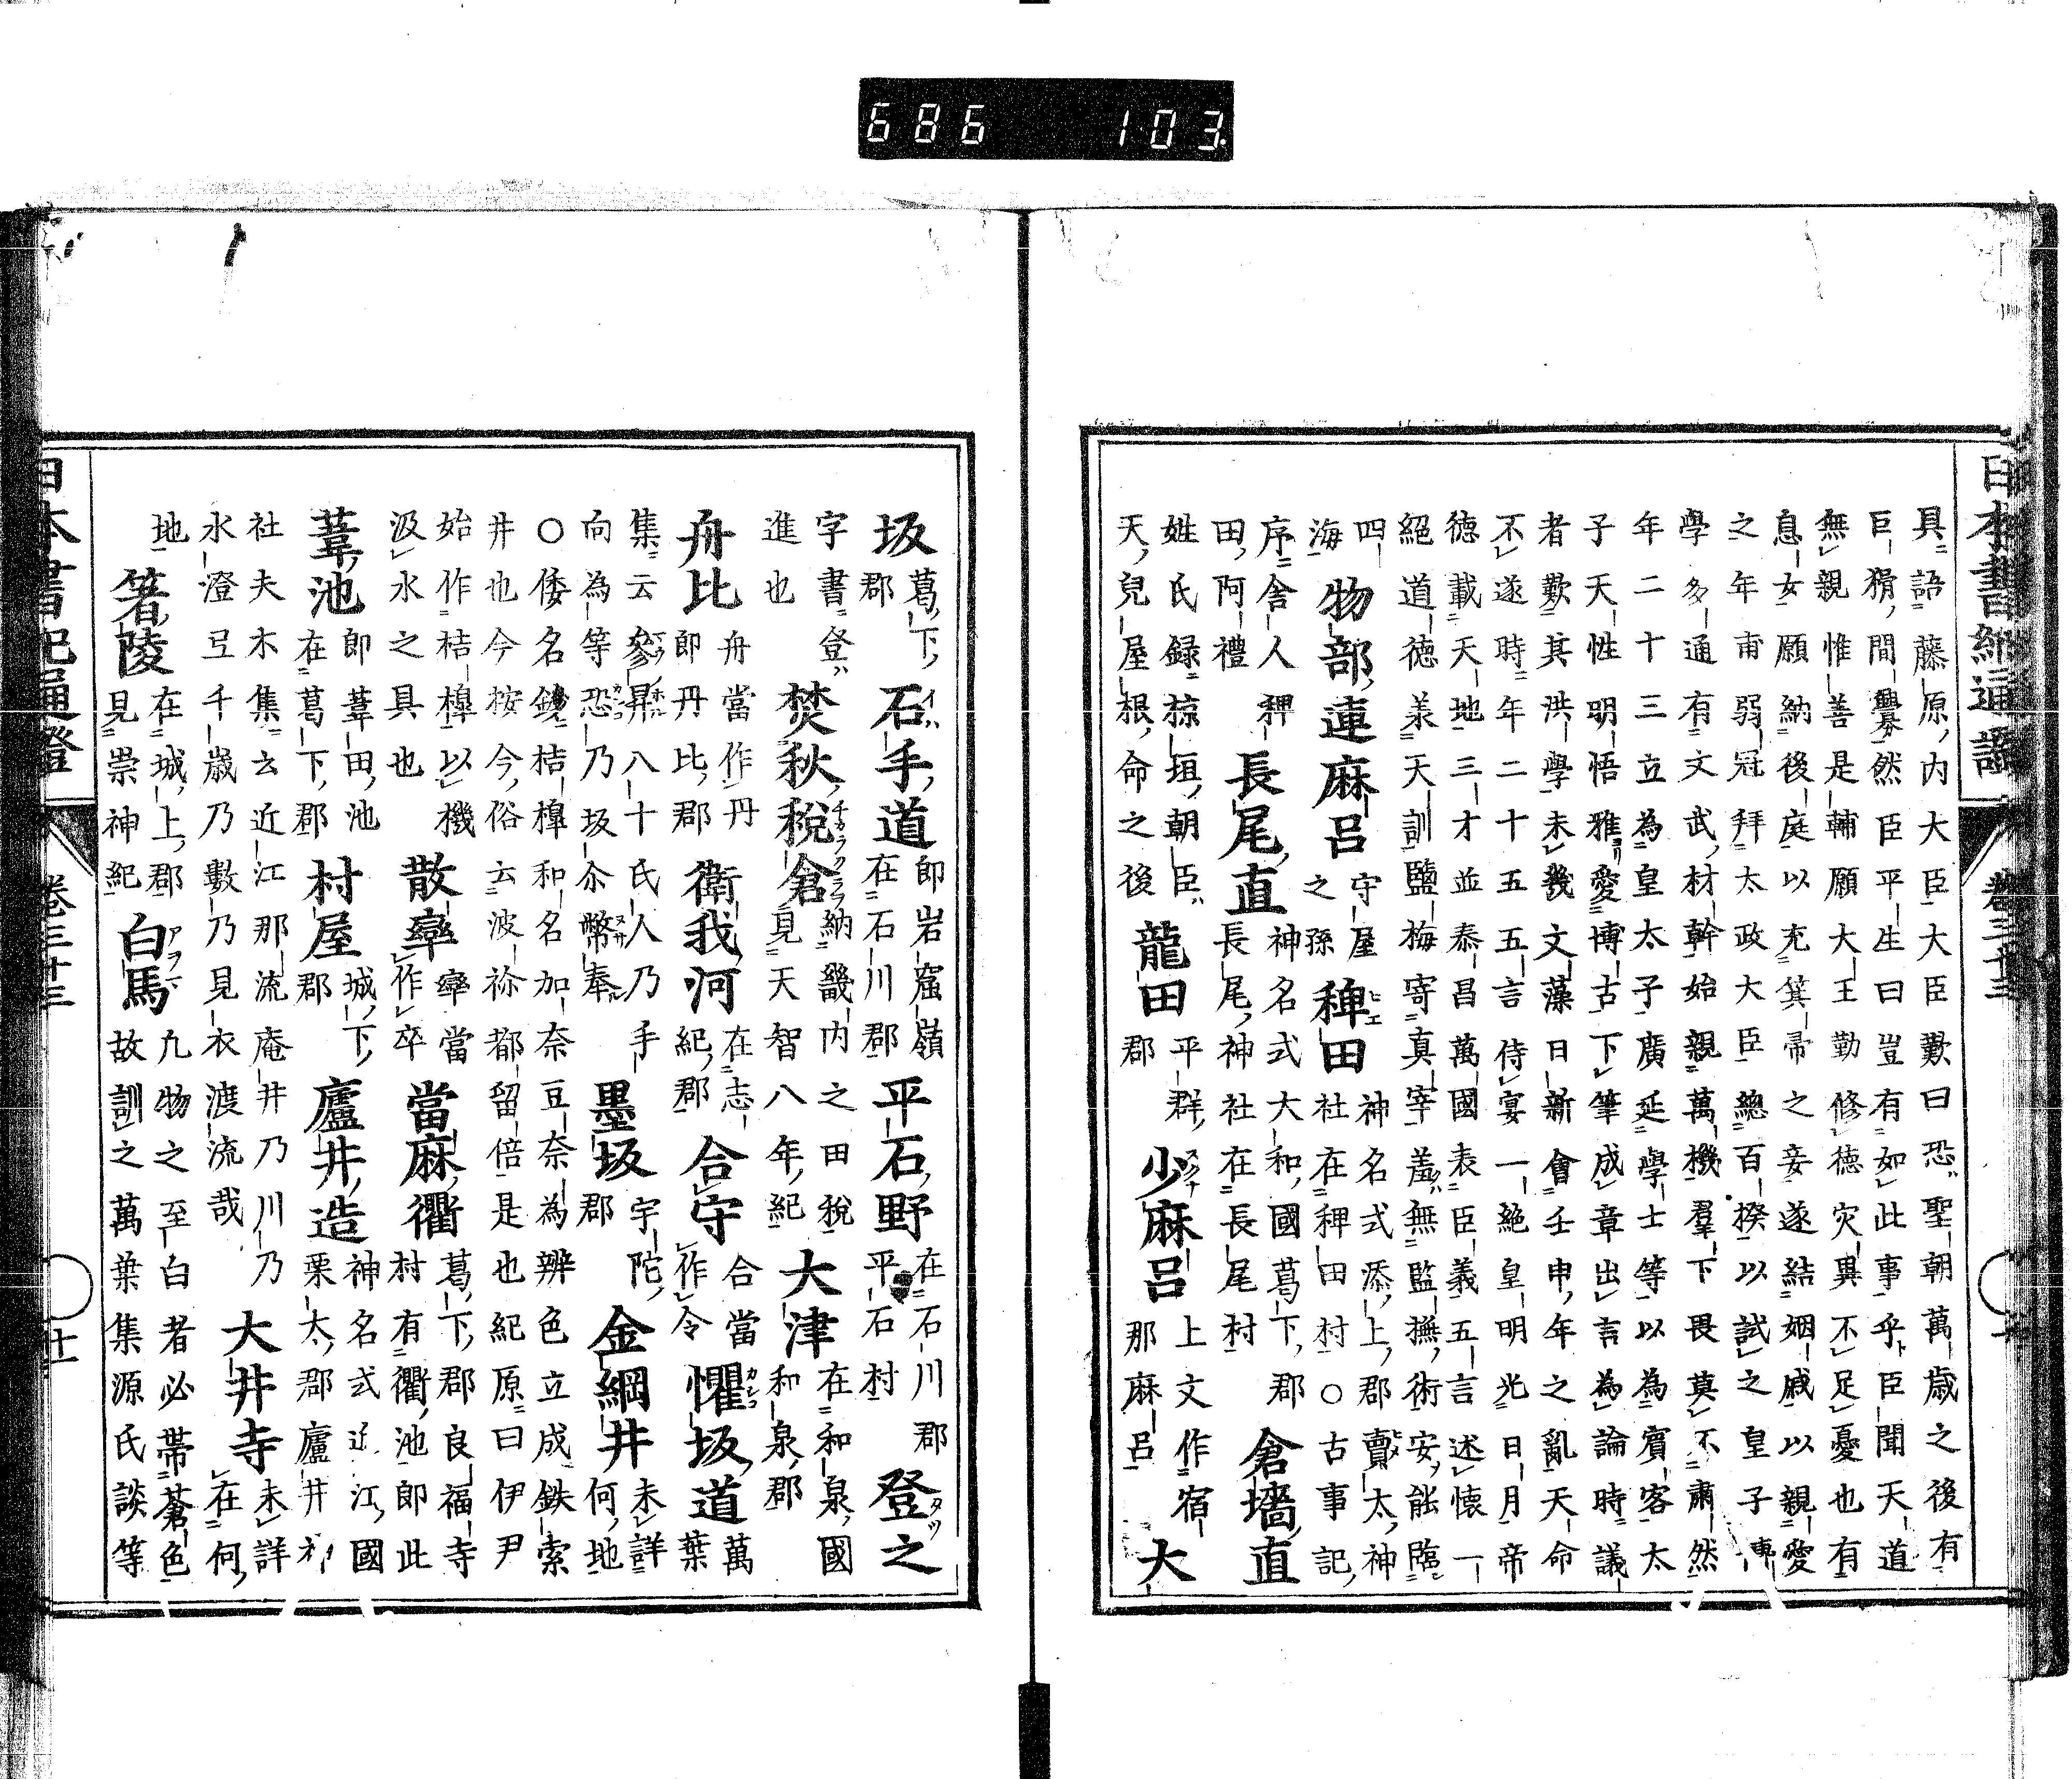 686 103.
日本書紀通證 卷三十三
具語藤原内大臣大臣歎曰恐聖朝萬歳之後有
巨猾間舋然臣平生曰豈有如此事乎臣聞天道
無親惟善是輔願大王勤修徳灾異不足憂也有
息女願納後庭以充箕帚之妾遂結姻戚以親愛
之年甫弱冠拜太政大臣總百揆以試之皇子博
學多通有文武材幹始親萬機羣下畏莫不肅然
年二十三立為皇太子廣延學士等以為賓客太
子天性明悟雅愛博古下筆成章出言為論時議
者歎其洪學未幾文藻日新會壬申年之亂天命
不遂時年二十五五言侍宴一絶皇明光日月帝
徳載天地三才並泰昌萬國表臣義五言述懷一
絶道徳羕天訓鹽梅寄真宰羞無監撫術安能臨
四海
物部連麻呂 守屋之孫
稗田 神名式添上郡賣太神社在稗田村〇古事記序舎人稗田阿禮
長尾直 神名式大和國葛下郡長尾神社在長尾村
倉墻直 姓氏録椋垣朝臣天兒屋根命之後
龍田 平群郡
少麻呂 上文作宿那麻呂
大
坂 葛下郡
石手道 即岩窟嶺在石川郡
平石野 在石川郡平石村
登之 字書登進也
焚秋税倉 納畿内之田税見天智八年紀
大津 在和泉國和泉郡
舟比 舟當作丹即丹比郡
衛我河 在志紀郡
合守 合當作令
懼坂道 萬葉集云參昇八十氏人乃手向為等恐乃坂尒幣奉
墨坂 宇陀郡
金綱井 未詳何地〇倭名鈔桔槹和名加奈豆奈為辨色立成鉄索井也今按今俗云波祢都留倍是也紀原曰伊尹始作桔槹以機汲水之具也
散𡘜 𡘜當作卒
當麻衢 葛下郡良福寺村有衢池即此
葦池 即葦田池在葛下郡
村屋 城下郡
廬井造 神名式近江國栗太郡廬井神社夫木集云近江那流庵井乃川乃水澄弖千歳乃數乃見衣渡流哉
大井寺 未詳在何地
箸陵 在城上郡見崇神紀
白馬 凡物之至白者必帶蒼色故訓之萬葉集源氏談等
日本書紀通證 卷三十三 十一